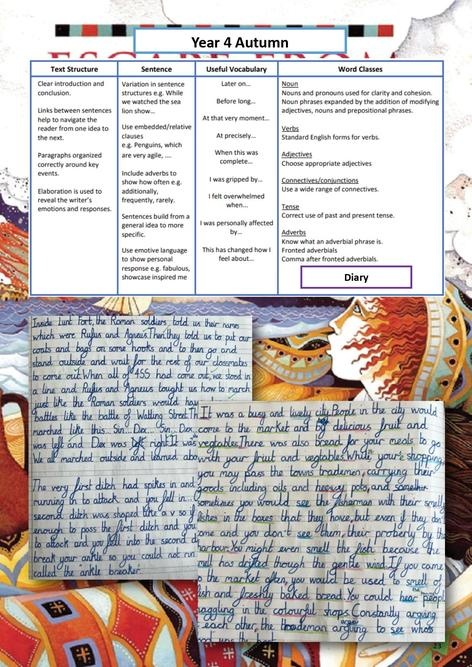 Year 4 Autumn
Text Structure
Clear introduction and
conclusion.
Links between sentences
help to navigate the
reader from one idea to
the next.
Paragraphs organized
correctly around key
events.
Elaboration is used to
reveal the writer's
emotions and responses.
Sentence
Variation in sentence
structures e.g. While
we watched the sea
lion show…
Use embedded/relative
clauses
e.g. Penguins, which
are very agile, ….
Include adverbs to
show how often e.g.
additionally,
frequently, rarely.
Sentences build from a
general idea to more
specific.
Use emotive language
to show personal
response e.g. fabulous,
showcase inspired me
Useful Vocabulary
Later on…
Before long…
At that very moment…
At precisely…
When this was
complete…
I was gripped by…
I felt overwhelmed
when…
I was personally affected
by…
This has changed how I
feel about…
Word Classes
Noun
Nouns and pronouns used for clarity and cohesion.
Noun phrases expanded by the addition of modifying
adjectives, nouns and prepositional phrases.
Verbs
Standard English forms for verbs.
Adjectives
Choose appropriate adjectives
Connectives/conjunctions
Use a wide range of connectives.
Tense
Correct use of past and present tense.
Adverbs
Know what an adverbial phrase is.
Fronted adverbials
Comma after fronted adverbials.
Diary
Inside Lunt Fort, the Roman soldiers, told us their name
which were Rufus and Agneus. Then, they told us to put our
coats and bags on some hooks and to then go and
stand outside and wait for the rest of our classmates
to come out. When all of 4SS had come out, we stood in
a line and Rufus and Agneus taught us how to march
just like the Roman soldiers would hav
battles like the battle of Watling Street. Th
marched like this... Sin.. Dex... Sin... Dex...
was left and Dex was right. It was
We all marched outside and learned abo
The very first ditch had spikes in and
running in to attack and you fell in...
second ditch was shaped like a v so if
enough to pass the first ditch and you
to attack and you fell into the second d
break your ankle so you could not run
called the 'ankle breaker'.
It was a busy and lively city. People in the city would
come to the market and by delicious fruit and
vegtables. There was also bread for your meals to go
with your fruit and vegtables. While your shopping
you may pass the towns trademen, carrying their
goods including oils and pots, and
sometimes you would see the fisherman with their smelly
fishes in the boxes that they have, but even if they don't
come and you don't see them, their properly by the
harbour. You might even smell the fish because the
smell has drifted though the gentle wind. If you came
to the market often, you would be used to smell of
fish and freshly baked bread. You could hear people
haggling in the colourful shops. Constantly arguing
each other, the trademan arguing to see whos
23